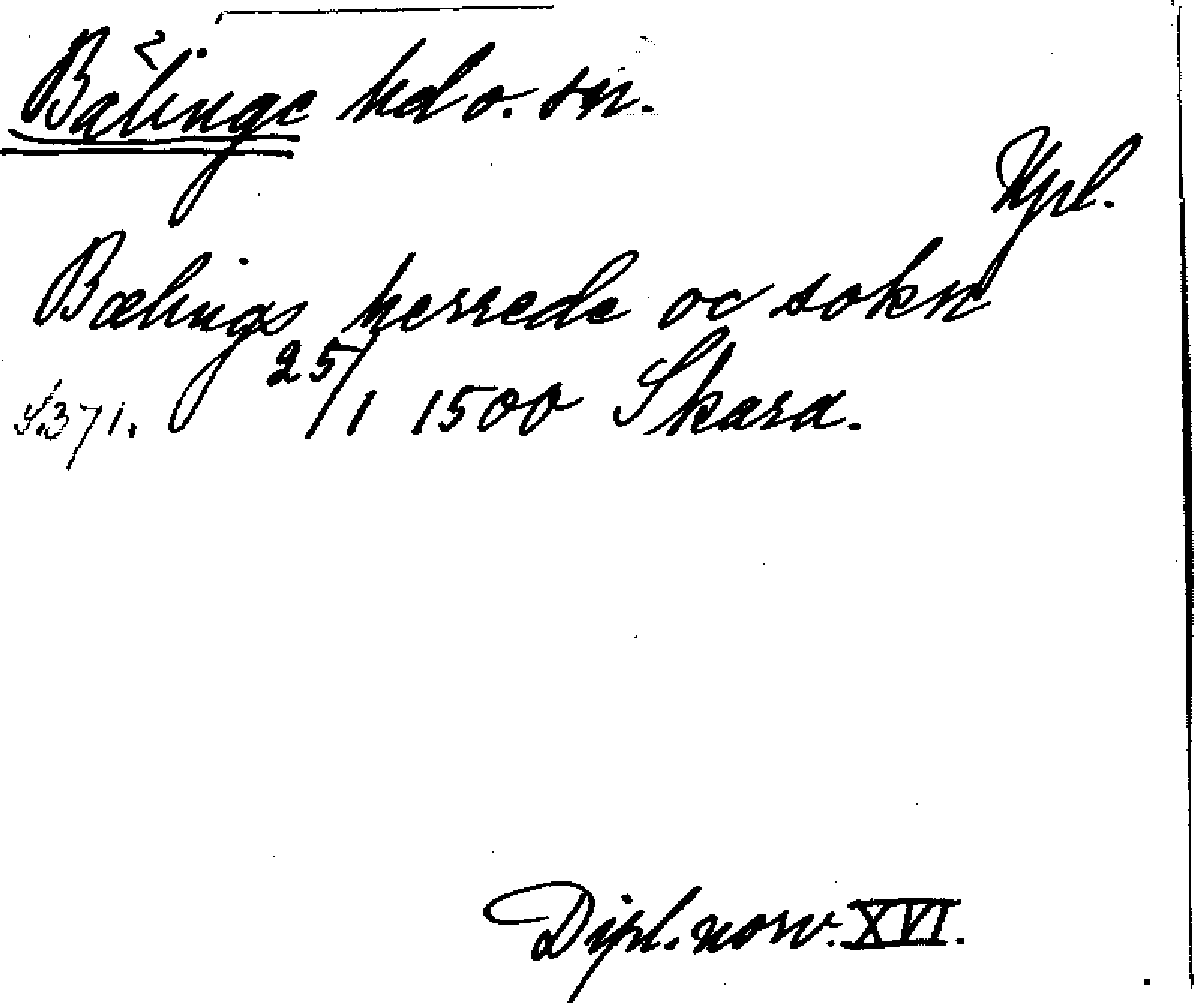 Bälinge hd o. sn.
Upl.
Bælings herrede oc sokn
S.371. 25/1 1500 Skara.
Dipl. norv. XVI.